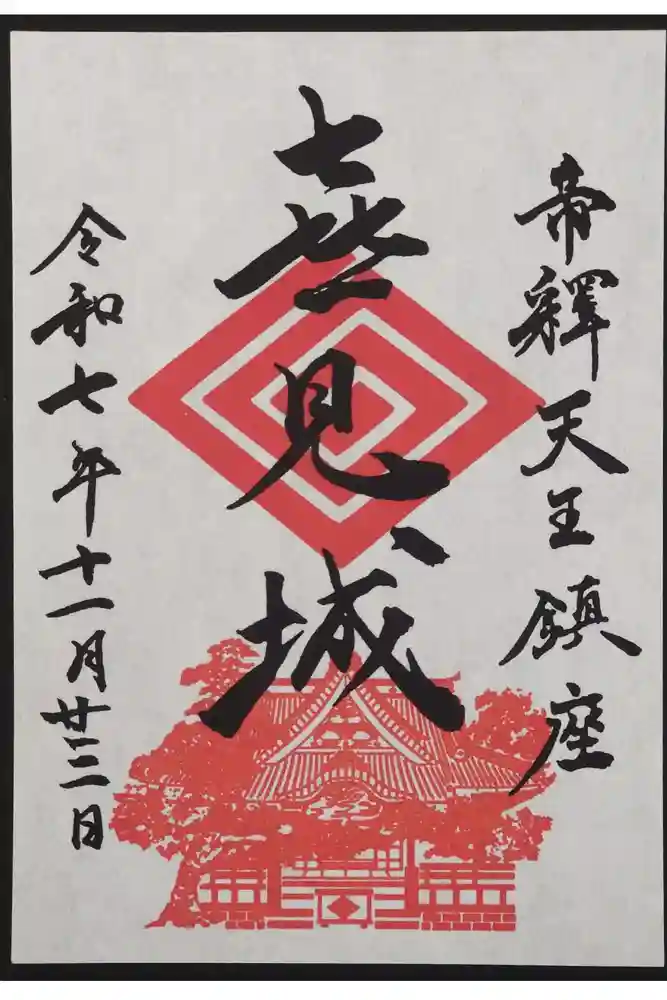 帝釋天王鎮座
喜見城
令和七年十一月廿三日